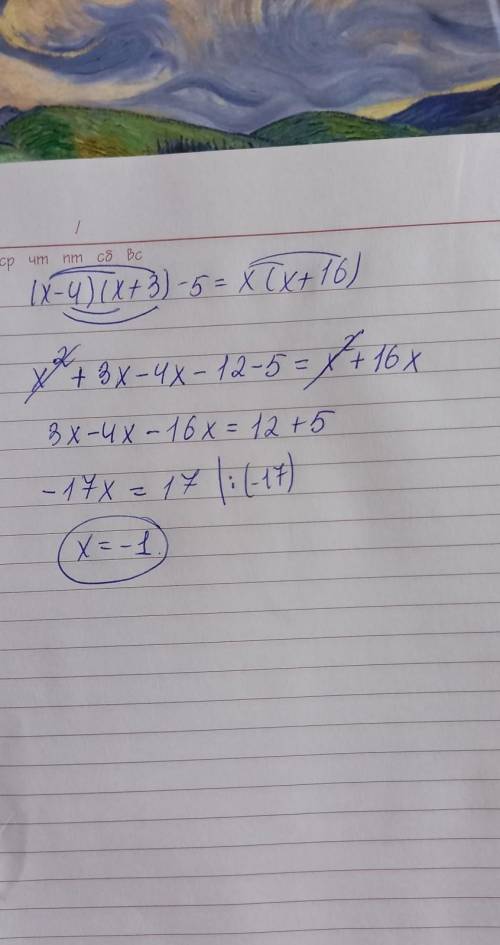 /
ср чт пт сб вс
(x-4)(x+3)-5=x(x+16)
x²+3x-4x-12-5=x²+16x
3x-4x-16x=12+5
-17x=17 |:(-17)
x=-1.